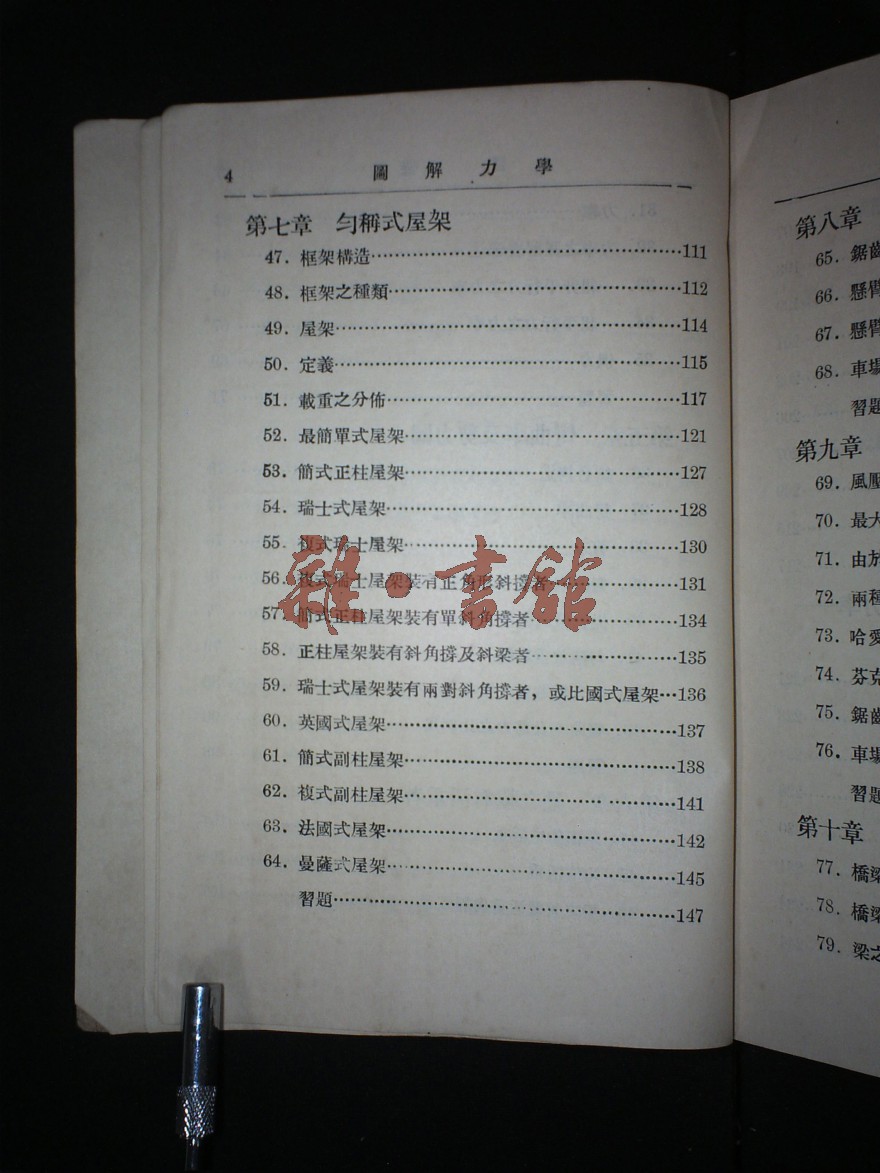 4 圖解力學
第七章 勻稱式屋架
47. 框架構造……111
48. 框架之種類……112
49. 屋架……114
50. 定義……115
51. 載重之分佈……117
52. 最簡單式屋架……121
53. 簡式正柱屋架……127
54. 瑞士式屋架……128
55. 複式瑞士屋架……130
56. 複式瑞士屋架裝有正角形斜撐者……131
57. 簡式正柱屋架裝有單斜角撐者……134
58. 正柱屋架裝有斜角撐及斜梁者……135
59. 瑞士式屋架裝有兩對斜角撐者，或比國式屋架…136
60. 英國式屋架……137
61. 簡式副柱屋架……138
62. 複式副柱屋架……141
63. 法國式屋架……142
64. 曼薩式屋架……145
習題……147
雜·書館
第八章
65. 鋸齒
66. 懸臂
67. 懸臂
68. 車場
習題
第九章
69. 風壓
70. 最大
71. 由於
72. 兩種
73. 哈愛
74. 芬克
75. 鋸齒
76. 車場
習題
第十章
77. 橋梁
78. 橋梁
79. 梁之